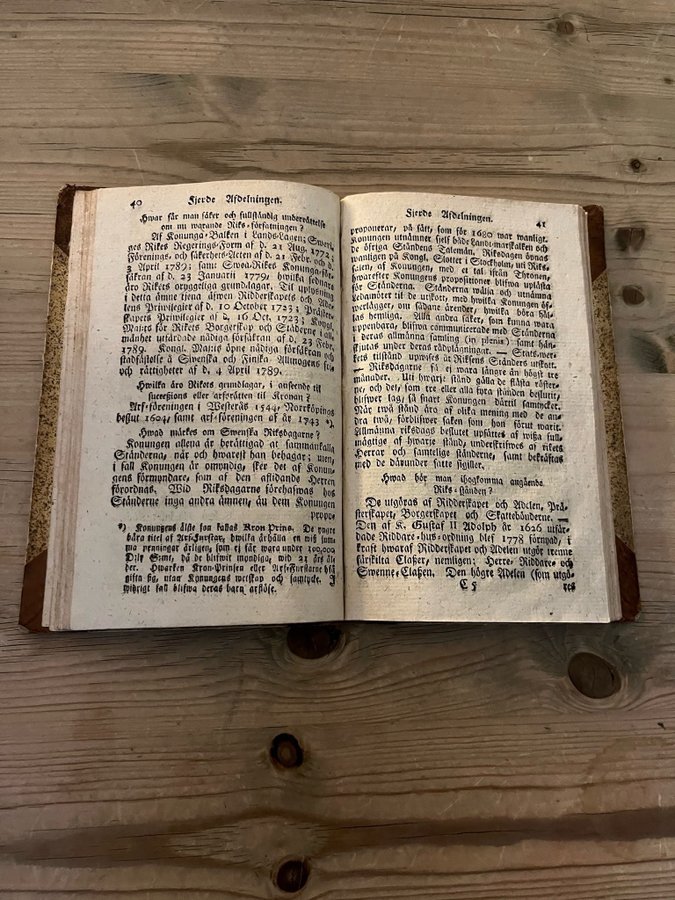 40
Fjerde Afdelningen.
Hwar får man säker och fullständig underrättelse
om nu warande Riks-författningen?
Af Konunga-Balken i Lands-Lagen; Sweri-
ges Rikes Regerings-Form af d. 21 Aug. 1772;
Förenings- och säkerhets-Acten af d. 21 Febr. och d.
3 April 1789; samt Swea-Rikes Konunga-för-
säkran af d. 23 Januarii 1779, hwilka sednare
äro Rikets oryggeliga grundlagar. Til uplysning
i detta ämne tjena äfwen Ridderskapets och Ade-
lens Privilegier af d. 16 October 1723; Präster-
skapets Privilegier af d. 16 Oct. 1723; Kongl.
Maj:ts för Rikets Borgerskap och Städerne i all-
mänhet utfärdade nådiga försäkran af d. 23 Febr.
1789. Kongl. Maj:ts öpne nådiga försäkran och
stadfästelse å Swenska och Finska Allmogens fri-
och rättigheter af d. 4 April 1789.
Hwilka äro Rikets grundlagar, i anseende til
successions eller arfsrätten til Kronan?
Arf-föreningen i Westerås 1544, Norrköpings
beslut 1604, samt arf-föreningen af år 1743 *).
Hwad märkes om Swenska Riksdagarne?
Konungen allena är berättigad at sammankalla
Ständerna, när och hwarest han behagar; men,
i fall Konungen är omyndig, sker det af Konun-
gens förmyndare, som af den aflidande Herren
förordnas. Wid Riksdagarne förehafwas hos
Ständerne inga andra ämnen, än dem Konungen
propo-
*) Konungens äldste son kallas Kron-Prins. De yngre
bära titel af Arf-Furstar, hwilka årligen en wiss sum-
ma penningar årligen, som ej får wara under 100,000
Dal. S:mt, då de blifwit mondiga, wid 21 års ål-
der. Hwarken Kron-Prinsen eller Arf-Furstarne må
gifta sig, utan Konungens wetskap och samtycke. I
widrigt fall blifwa deras barn arflöse.
Fjerde Afdelningen.
41
proponerar, på sätt, som för 1680 war wanligt.
Konungen utnämner sjelf både Landt-marskalken och
de öfriga Ståndens Talemän. Riksdagen öpnas
wanligen på Kongl. Slottet i Stockholm, uti Riks-
salen, af Konungen, med et tal ifrån Thronen,
hwarefter Konungens propositioner blifwa upläste
för Ständerna. Ständerna wälja och utnämna
Ledamöter til de utskott, med hwilka Konungen öf-
werlägger, om sådane ärender, hwilka böra hål-
las hemliga. Alla andra saker, som kunna wara
uppenbara, blifwa communicerade med Ständerna
i deras allmänna samling (in pleniis) samt hän-
skjutas under deras rådplägningar. — Stats-wer-
kets tilstånd upwises åt Riksens Ständers utskott.
— Riksdagarne få ej wara längre än högst tre
månader. Uti hwarje stånd gälla de flästa röster-
ne, och det, som tre eller alla fyra stånden beslutit,
blifwer lag, så snart Konungen därtil samtycker.
När twå stånd äro af olika mening med de an-
dra twå, förblifwer saken som hon förut warit.
Allmänna riksdags beslutet upsättes af wissa full-
mägtige af hwarje stånd, underskrifwes af rikets
Herrar och samtelige ständerne, samt bekräftas
med de därunder satte sigiller.
Hwad bör man ihogkomma angående
Riks-stånden?
De utgöras af Ridderskapet och Adelen, Prä-
sterskapet, Borgerskapet och Skattebönderne. —
Den af K. Gustaf II Adolph år 1626 utfär-
dade Riddare-hus-ordning blef 1778 förnyad, i
kraft hwaraf Ridderskapet och Adelen utgör trenne
särskilta Classer, nemligen: Herre- Riddare- och
Swenne-Classen. Den högre Adelen (som utgö-
C 5
res